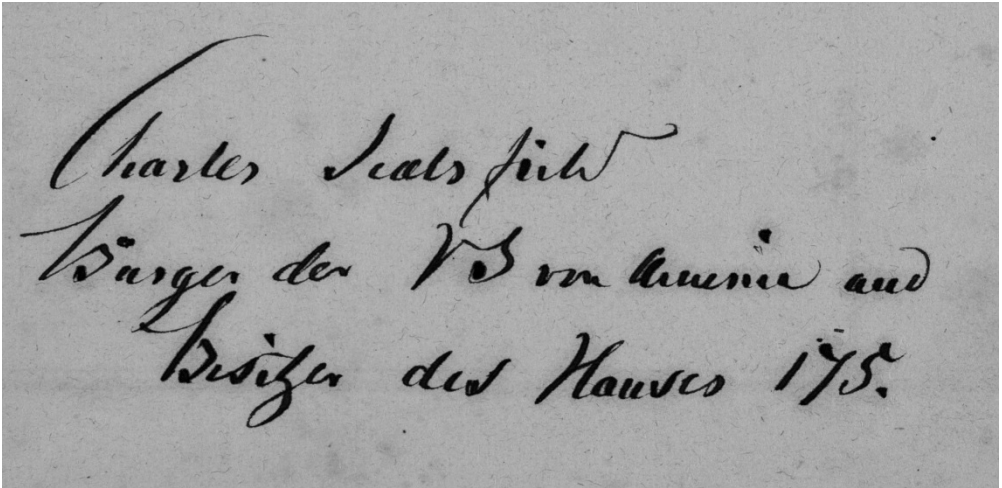 Charles Sealsfield
Bürger der VS von Amerika und
Besitzer des Hauses 175.